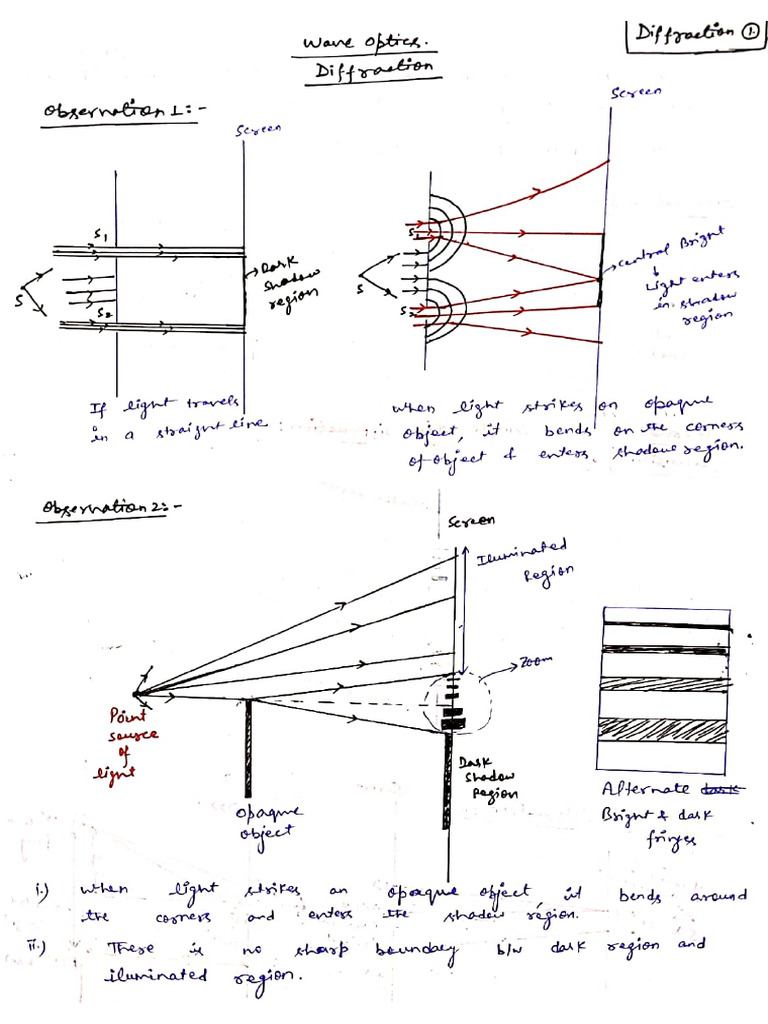 Diffraction ①
Wave Optics.
Diffraction
Observation 1:-
Screen
Screen
S1
S2
S
Dark
shadow
region
S1
S2
S
Central Bright
Light enters
in shadow
region
If light travels
in a straight line
When light strikes on opaque
object, it bends on the corners
of object & enters shadow region.
Observation 2:-
Screen
Illuminated
Region
Zoom
Point
source
of
light
Opaque
object
Dark
Shadow
Region
Alternate dark
Bright & dark
fringes
i.) When light strikes an opaque object it bends around
the corners and enters the shadow region.
ii.) There is no sharp boundary b/w dark region and
illuminated region.